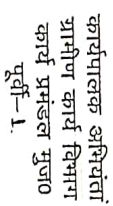 कार्यपालक अभियंता
ग्रामीण कार्य विभाग
कार्य प्रमंडल मुज०
पूर्वी-1.